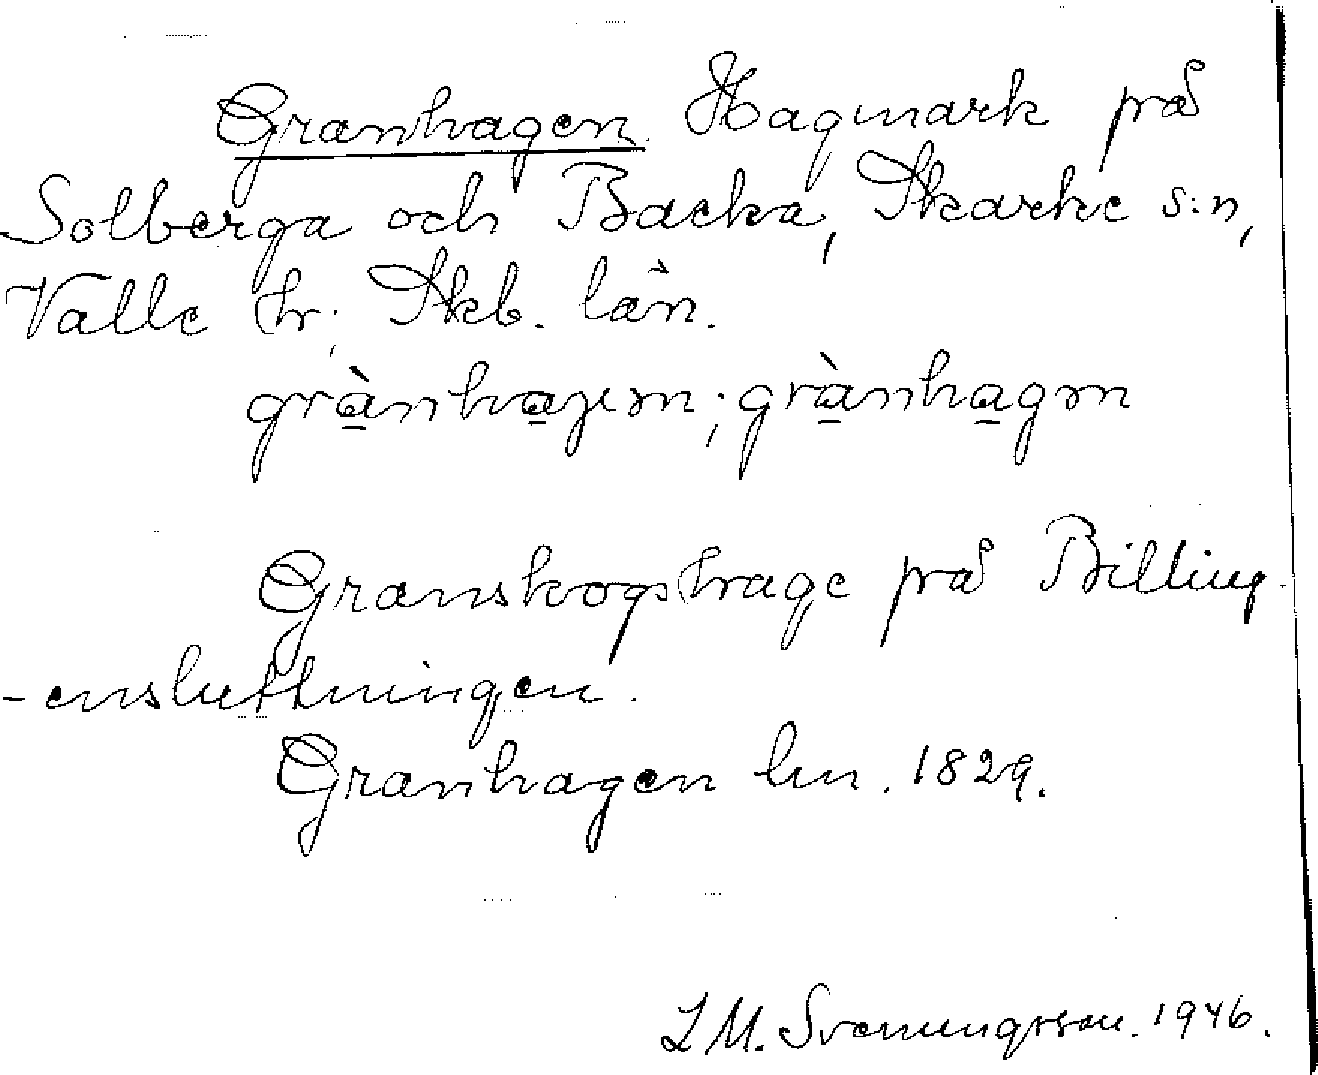 Granhagen. Hagmark på
Solberga och Backa, Skarke s:n,
Valle hr, Skb. län.
grànhaɟen; grànhagɷn
Granskogshage på Billing-
-ensluttningen.
Granhagen lm. 1829.
L M. Svenungsson. 1946.